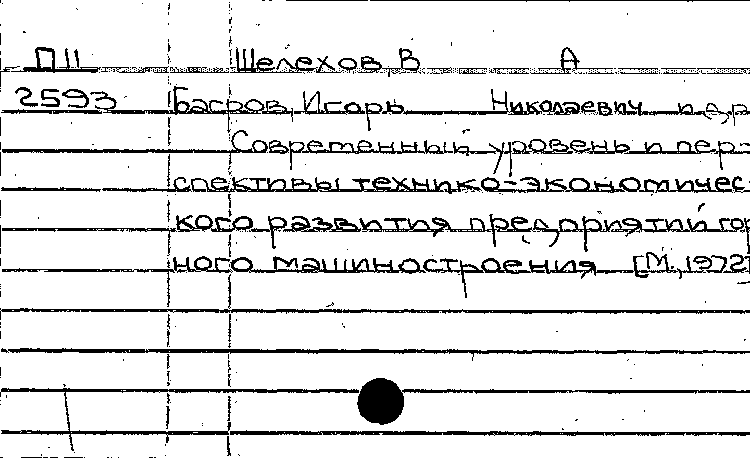 П11 Шелехов, В А
2593 Басров, Игорь Николаевич
Современный уровень и пер-
спективы технико-экономичес-
кого развития предприятий гор-
ного машиностроения [М., 1972]